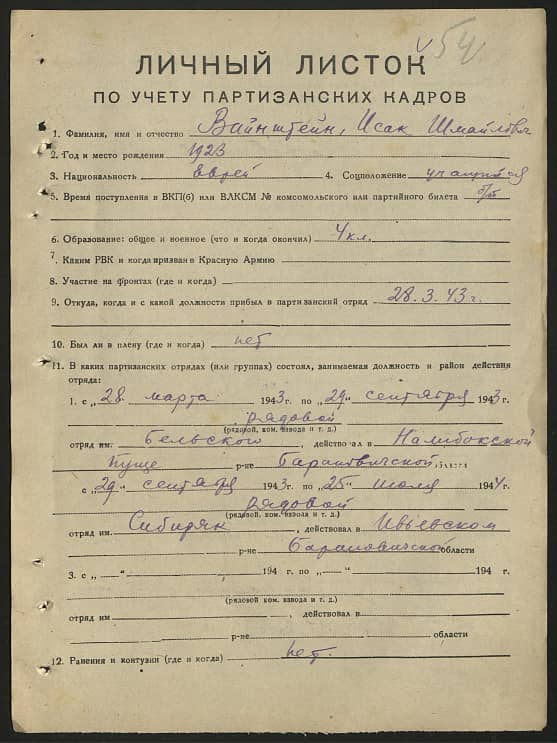 √54
ЛИЧНЫЙ ЛИСТОК
ПО УЧЕТУ ПАРТИЗАНСКИХ КАДРОВ
1. Фамилия, имя и отчество Вайнштейн, Исак Шмайлович
2. Год и место рождения 1923
3. Национальность еврей 4. Соцположение учащийся
5. Время поступления в ВКП(б) или ВЛКСМ № комсомольского или партийного билета б/п
6. Образование: общее и военное (что и когда окончил) 4 кл.
7. Каким РВК и когда призван в Красную Армию
8. Участие на фронтах (где и когда)
9. Откуда, когда и с какой должности прибыл в партизанский отряд 28.3.43 г.
10. Был ли в плену (где и когда) нет
11. В каких партизанских отрядах (или группах) состоял, занимаемая должность и район действия
отряда:
1. с „28“ марта 1943 г. по „29“ сентября 1943 г.
рядовой
(рядовой, ком. взвода и т. д.)
отряд им. Бельского, действовал в Налибокской
пуще р-не Барановичской области
с „29“ сентября 1943 г. по „25“ июля 1944 г.
рядовой
(рядовой, ком. взвода и т. д.)
отряд им. Сибиряк, действовал в Ивьевском
р-не Барановичской области
3. с „—“ 194 г. по „—“ 194 г.
(рядовой, ком. взвода и т. д.)
отряд им , действовал в
р-не области
12. Ранения и контузии (где и когда) нет.